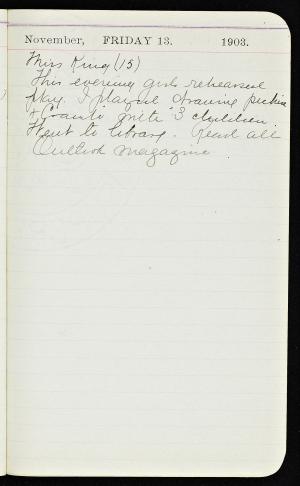 November, FRIDAY 13. 1903.
Miss King (15)
This evening girls rehearsed
play. I played drawing picture
& with 3 children.
Went to library. Read all
Outlook magazine